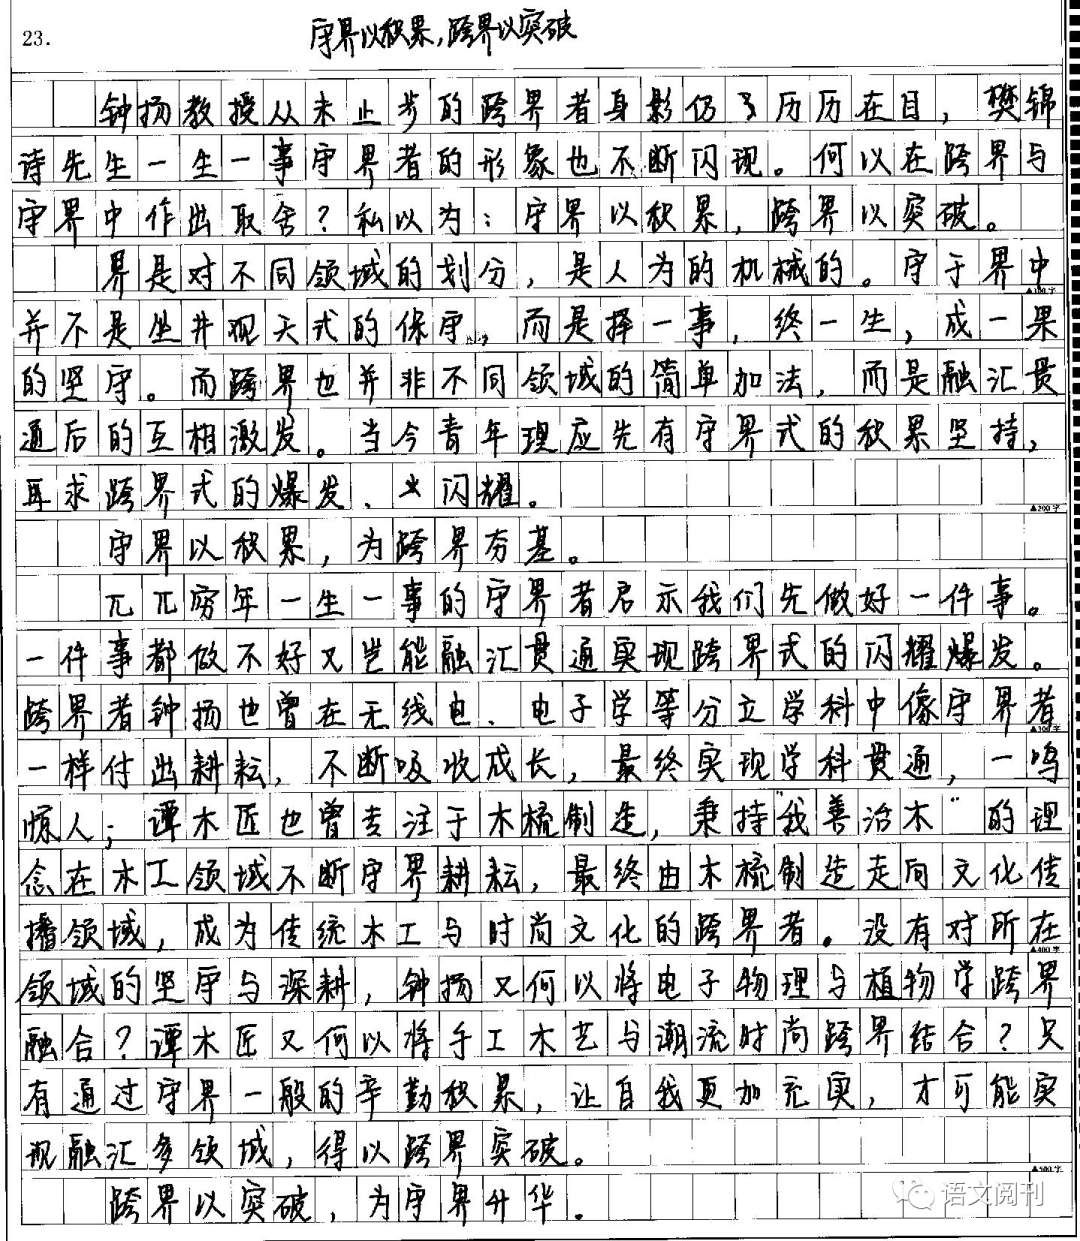 23.
守界以积累，跨界以突破
钟扬教授从未止步的跨界者身影仍历历在目，樊锦
诗先生一生一事守界者的形象也不断闪现。何以在跨界与
守界中作出取舍？私以为：守界以积累，跨界以突破。
界是对不同领域的划分，是人为的机械的。守于界中
▲100字
并不是坐井观天式的保守，而是择一事，终一生，成一果
的坚守。而跨界也并非不同领域的简单加法，而是融汇贯
通后的互相激发。当今青年理应先有守界式的积累坚持，
再求跨界式的爆发、闪耀。
▲200字
守界以积累，为跨界夯基。
兀兀穷年一生一事的守界者启示我们先做好一件事。
一件事都做不好又岂能融汇贯通实现跨界式的闪耀爆发。
跨界者钟扬也曾在无线电、电子学等分立学科中像守界者
▲300字
一样付出耕耘，不断吸收成长，最终实现学科贯通，一鸣
惊人；谭木匠也曾专注于木梳制造，秉持“我善治木”的理
念在木工领域不断守界耕耘，最终由木梳制造走向文化传
播领域，成为传统木工与时尚文化的跨界者。没有对所在
▲400字
领域的坚守与深耕，钟扬又何以将电子物理与植物学跨界
融合？谭木匠又何以将手工木艺与潮流时尚跨界结合？只
有通过守界一般的辛勤积累，让自我更加充实，才可能实
现融汇多领域，得以跨界突破。
▲500字
跨界以突破，为守界升华。
语文阅刊